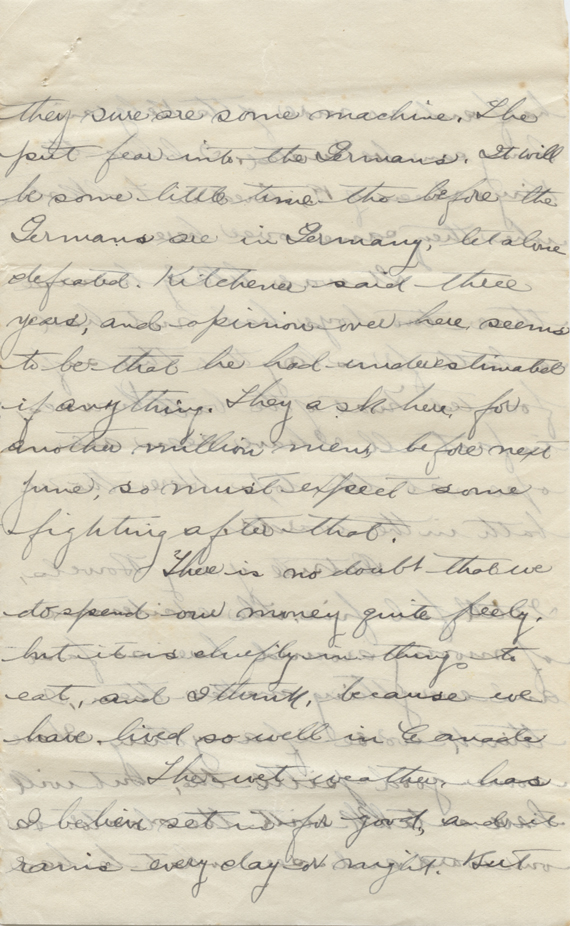 they sure are some machine. The
put fear into the Germans. It will
be some little time tho before the
Germans are in Germany, let alone
defeated. Kitchener said three
years, and opinion over here seems
to be that he had underestimated
if anything. They ask here for
another million men, before next
June, so must expect some
fighting after that.
There is no doubt that we
do spend our money quite freely.
but it is chiefly in things to
eat, and I think, because we
have lived so well in Canada
The wet weather has
I believe set in for good, and it
rains every day or night. But